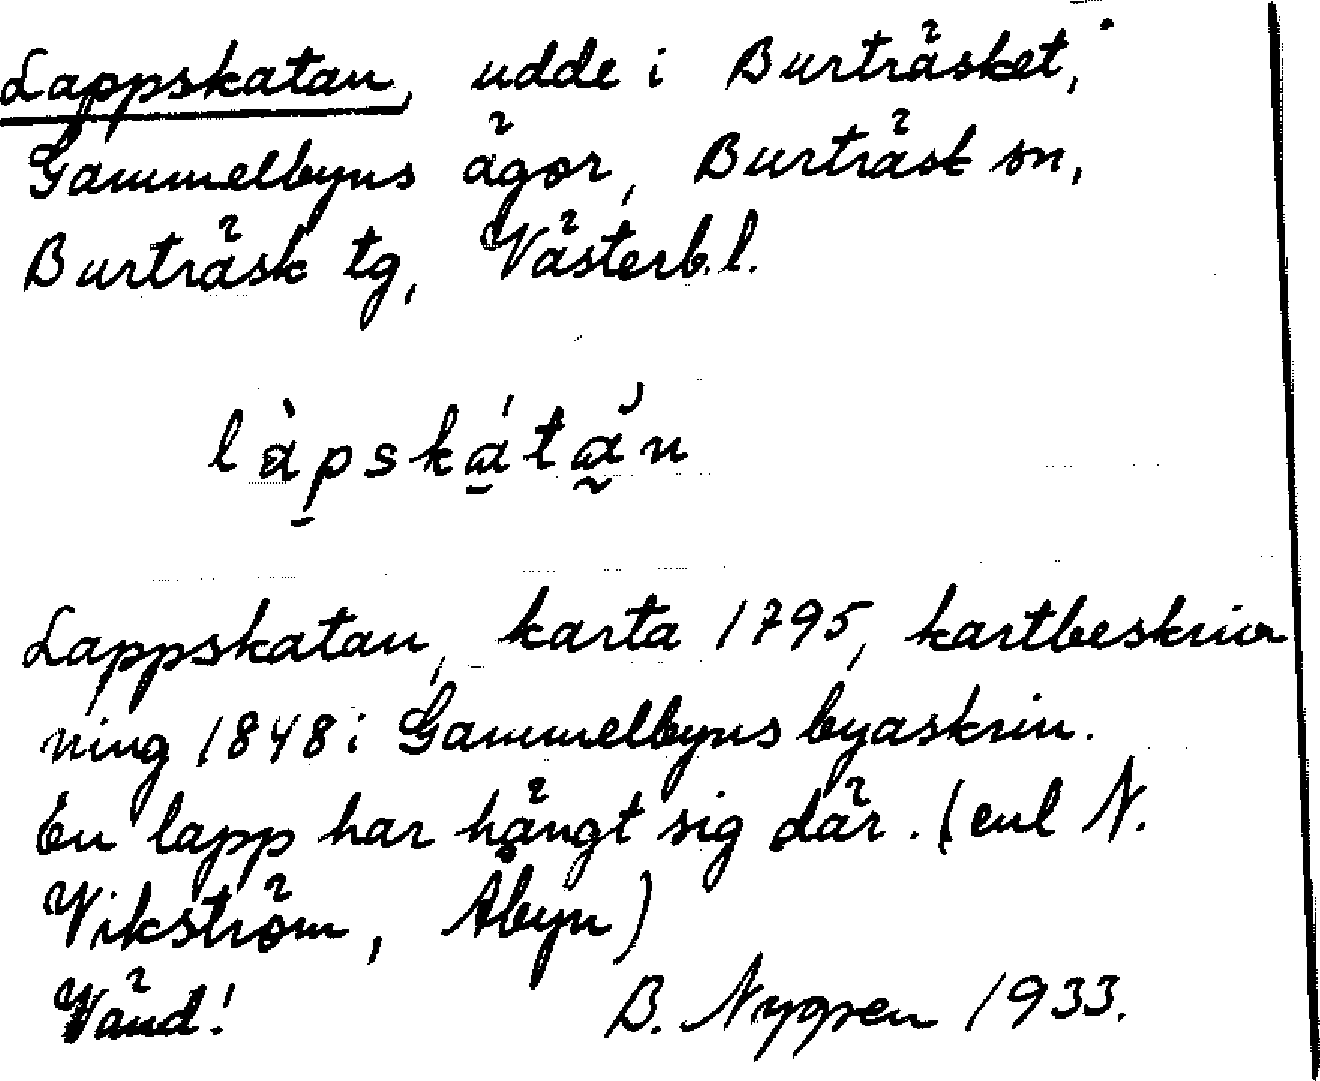 Lappskatan, udde i Burträsket,
Gammelbyns ägor, Burträsk sn,
Burträsk tg, Västerb.l.
làpská̱tă̰n
Lappskatan, karta 1795, kartbeskriv
ning 1848 i Gammelbyns byaskrin.
En lapp har hängt sig där. (enl N.
Vikström, Åbyn)
Vänd! B. Nygren 1933.